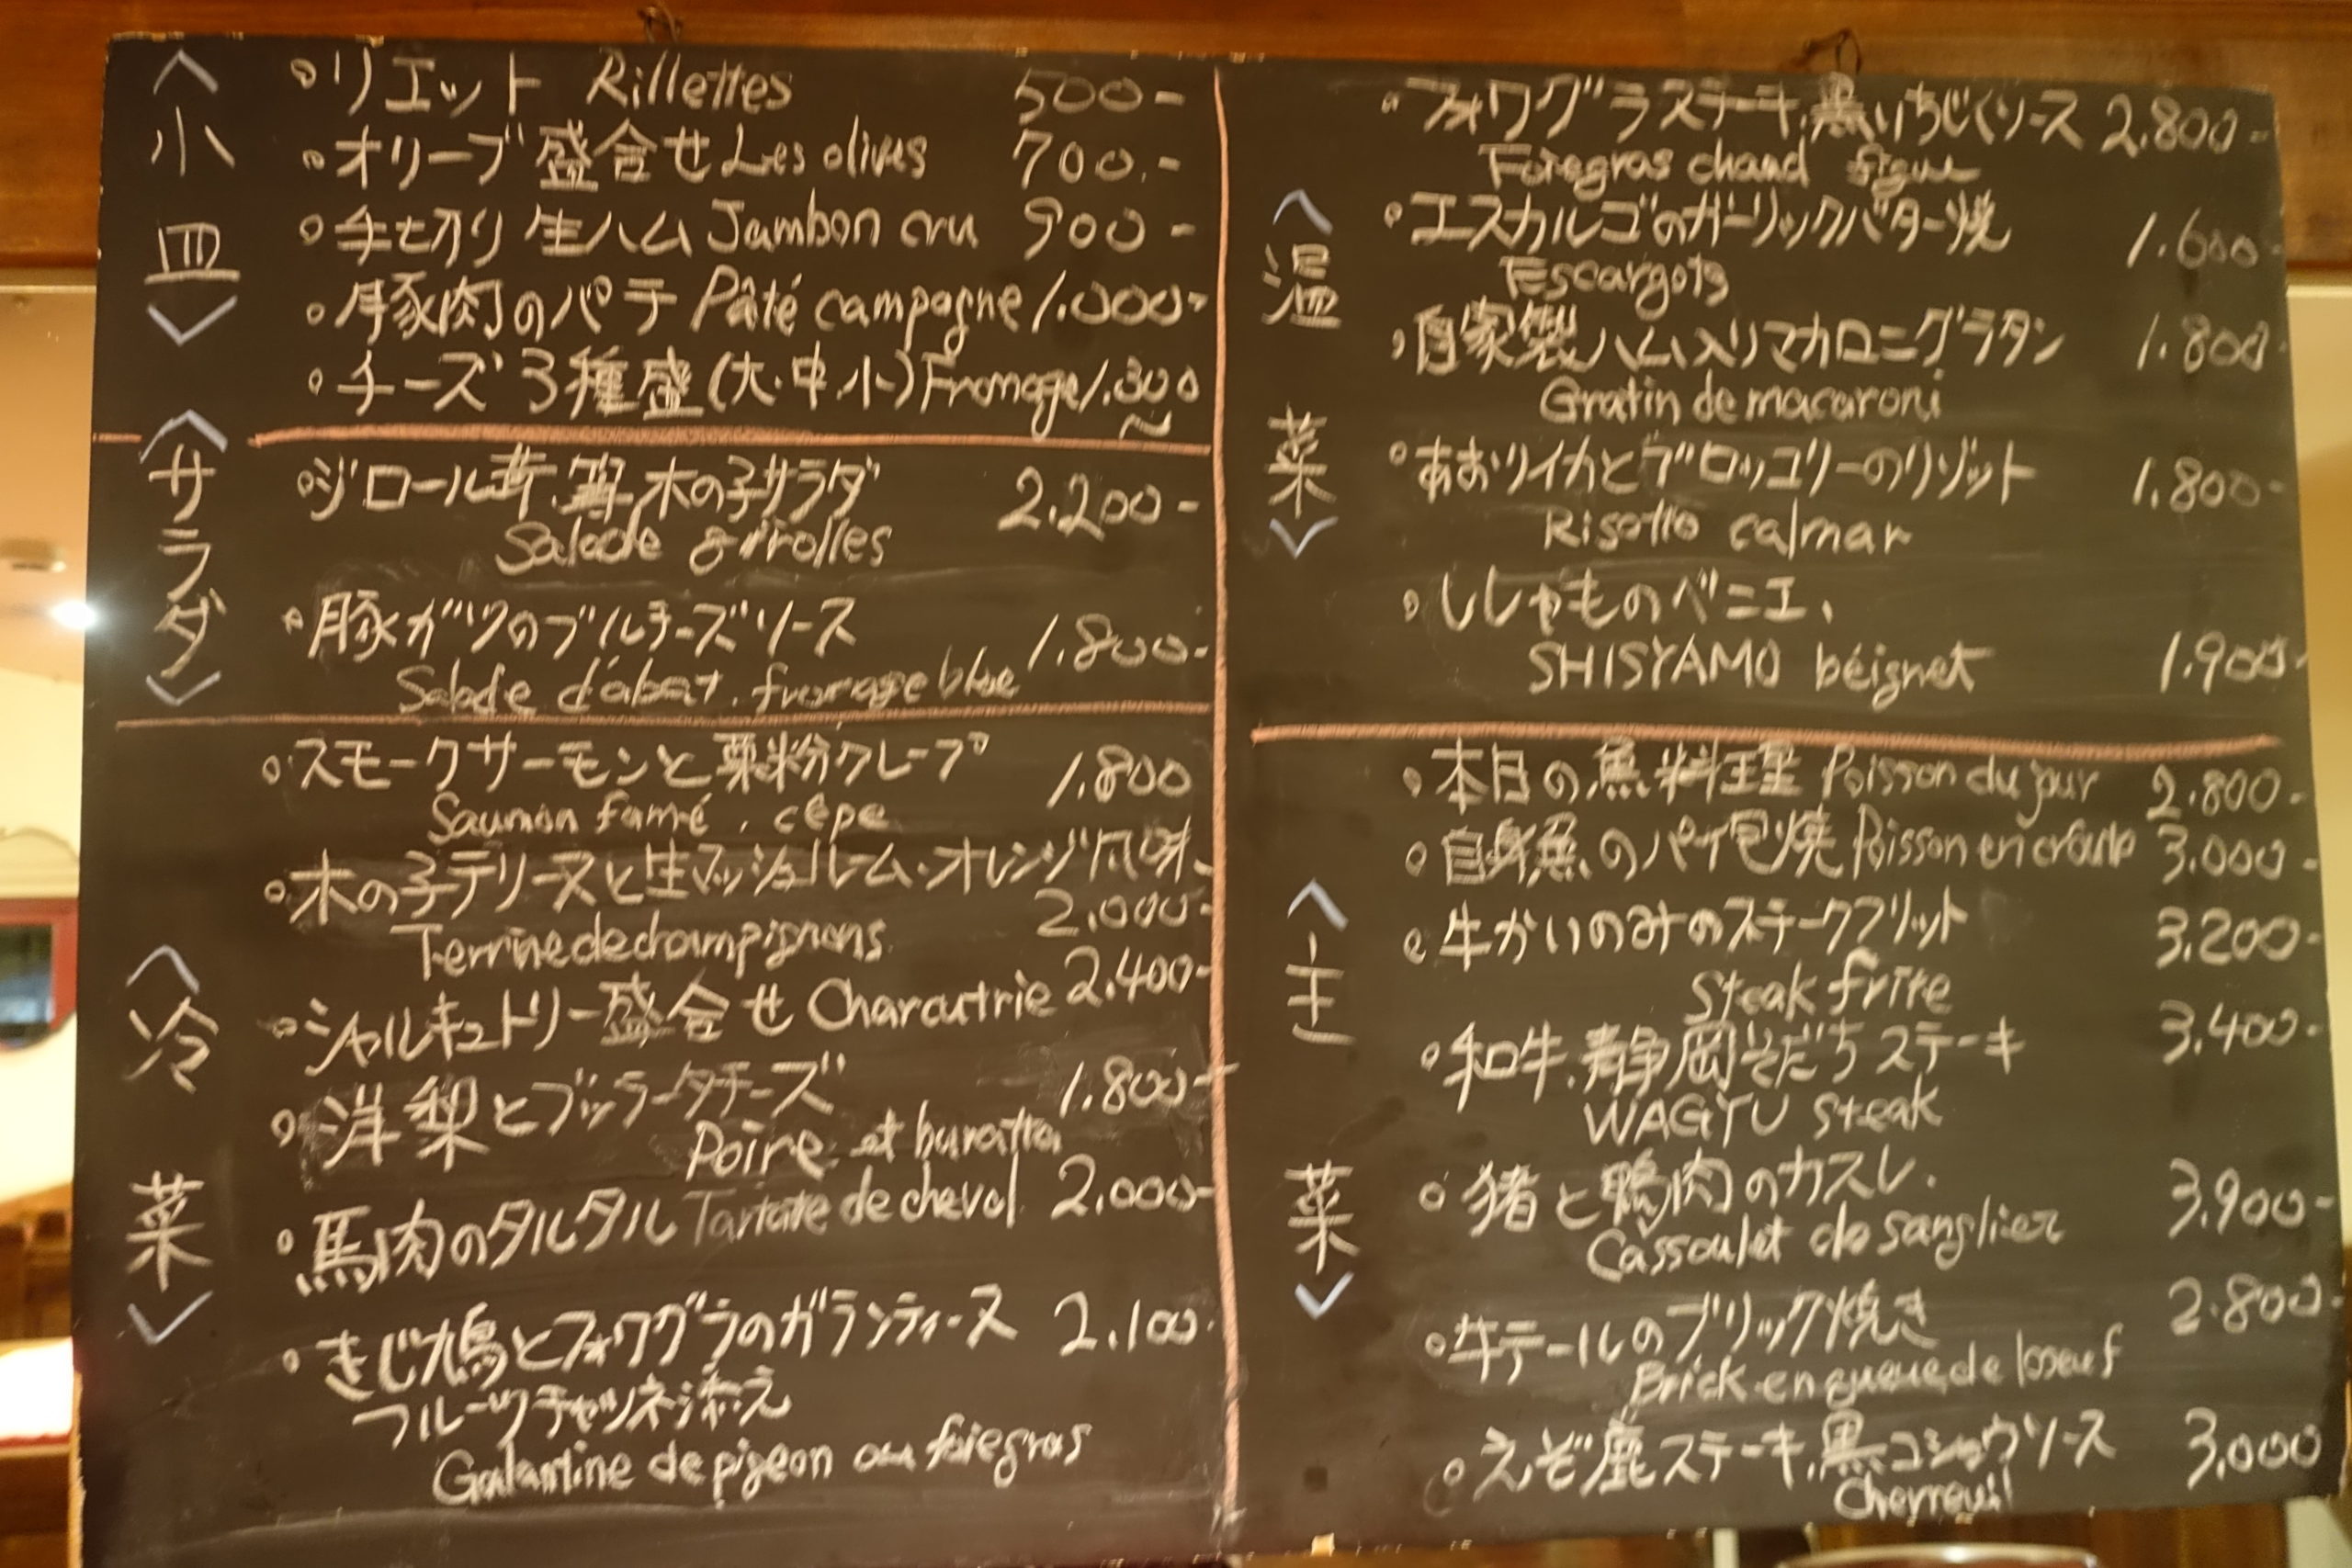 〈小皿〉
○リエット Rillettes 500-
○オリーブ盛合せ Les olives 700.-
○手切り生ハム Jambon cru 900-
○豚肉のパテ Pâté campagne 1.000-
○チーズ3種盛(大・中・小) Fromage 1.300~
〈サラダ〉
○ジロール茸、木の子サラダ 2.200-
Salade girolles
○豚ガツのブルチーズソース 1.800-
Salade d'abat. fromage blue
〈冷菜〉
○スモークサーモンと栗粉クレープ 1.800
Saumon famé. cêpe
○木の子テリーヌと生マッシュルーム・オレンジ風味 2.000-
Terrine de champignons
○シャルキュトリー盛合せ Charcutrie 2.400-
○洋梨とブッラータチーズ 1.800-
Poire et buratta
○馬肉のタルタル Tartare de cheval 2.000-
○きじ鳩とフォワグラのガランティーヌ 2.100-
フルーツチャツネ添え
Galantine de pigeon au foiegras
〈温菜〉
○フォワグラステーキ、黒いちじくソース 2.800-
Foiegras chaud figue
○エスカルゴのガーリックバター焼 1.600-
Escargots
○自家製ハム入りマカロニグラタン 1.800-
Gratin de macaroni
○あおりイカとブロッコリーのリゾット 1.800-
Risotto calmar
○ししゃものベニエ、
SHISYAMO béignet 1.900-
〈主菜〉
○本日の魚料理 Poisson du jour 2.800-
○白身魚のパイ包焼 Poisson en croute 3.000-
○牛かいのみのステークフリット 3.200-
Steak frite
○和牛、静岡そだちステーキ 3.400-
WAGYU steak
○猪と鴨肉のカスレ. 3.900-
Cassoulet de sanglier
○牛テールのブリック焼き 2.800-
Brick en queue de boeuf
○えぞ鹿ステーキ、黒コショウソース 3,000
Chevreuil